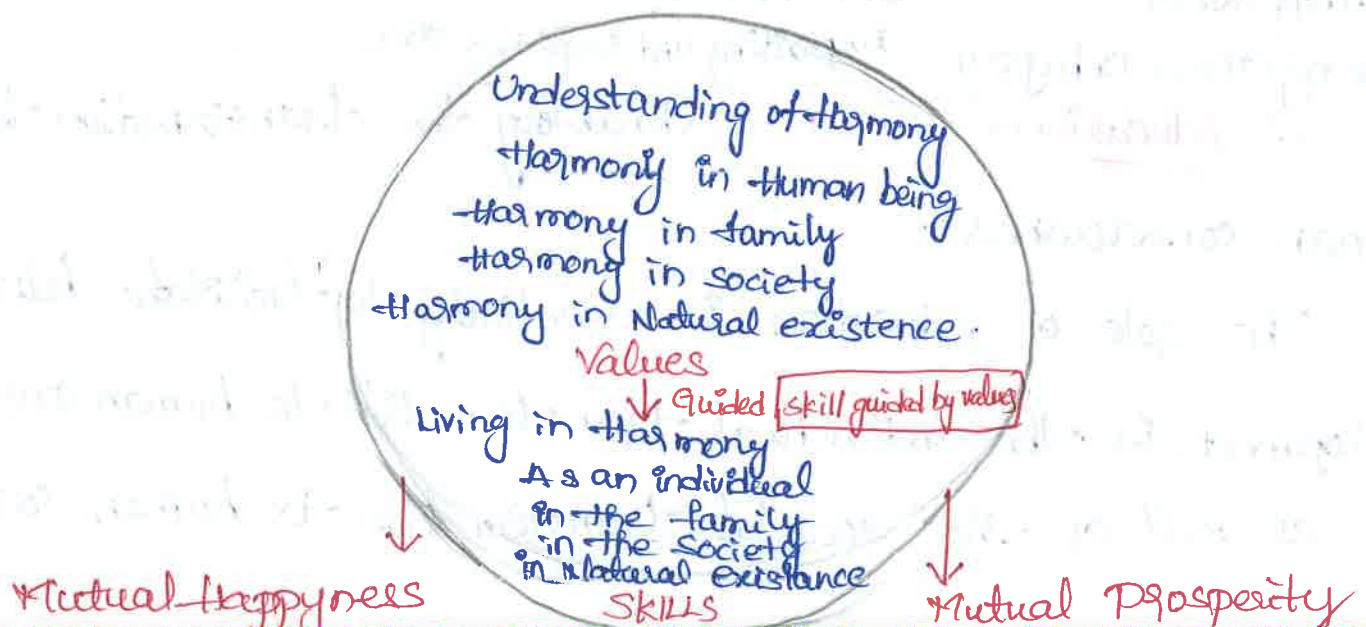 Understanding of Harmony
Harmony in Human being
Harmony in family
Harmony in society
Harmony in Natural existence.
Values
Guided skill guided by values
Living in Harmony
As an individual
in the family
in the society
in Natural existance
Mutual Happyness SKILLS Mutual Prosperity